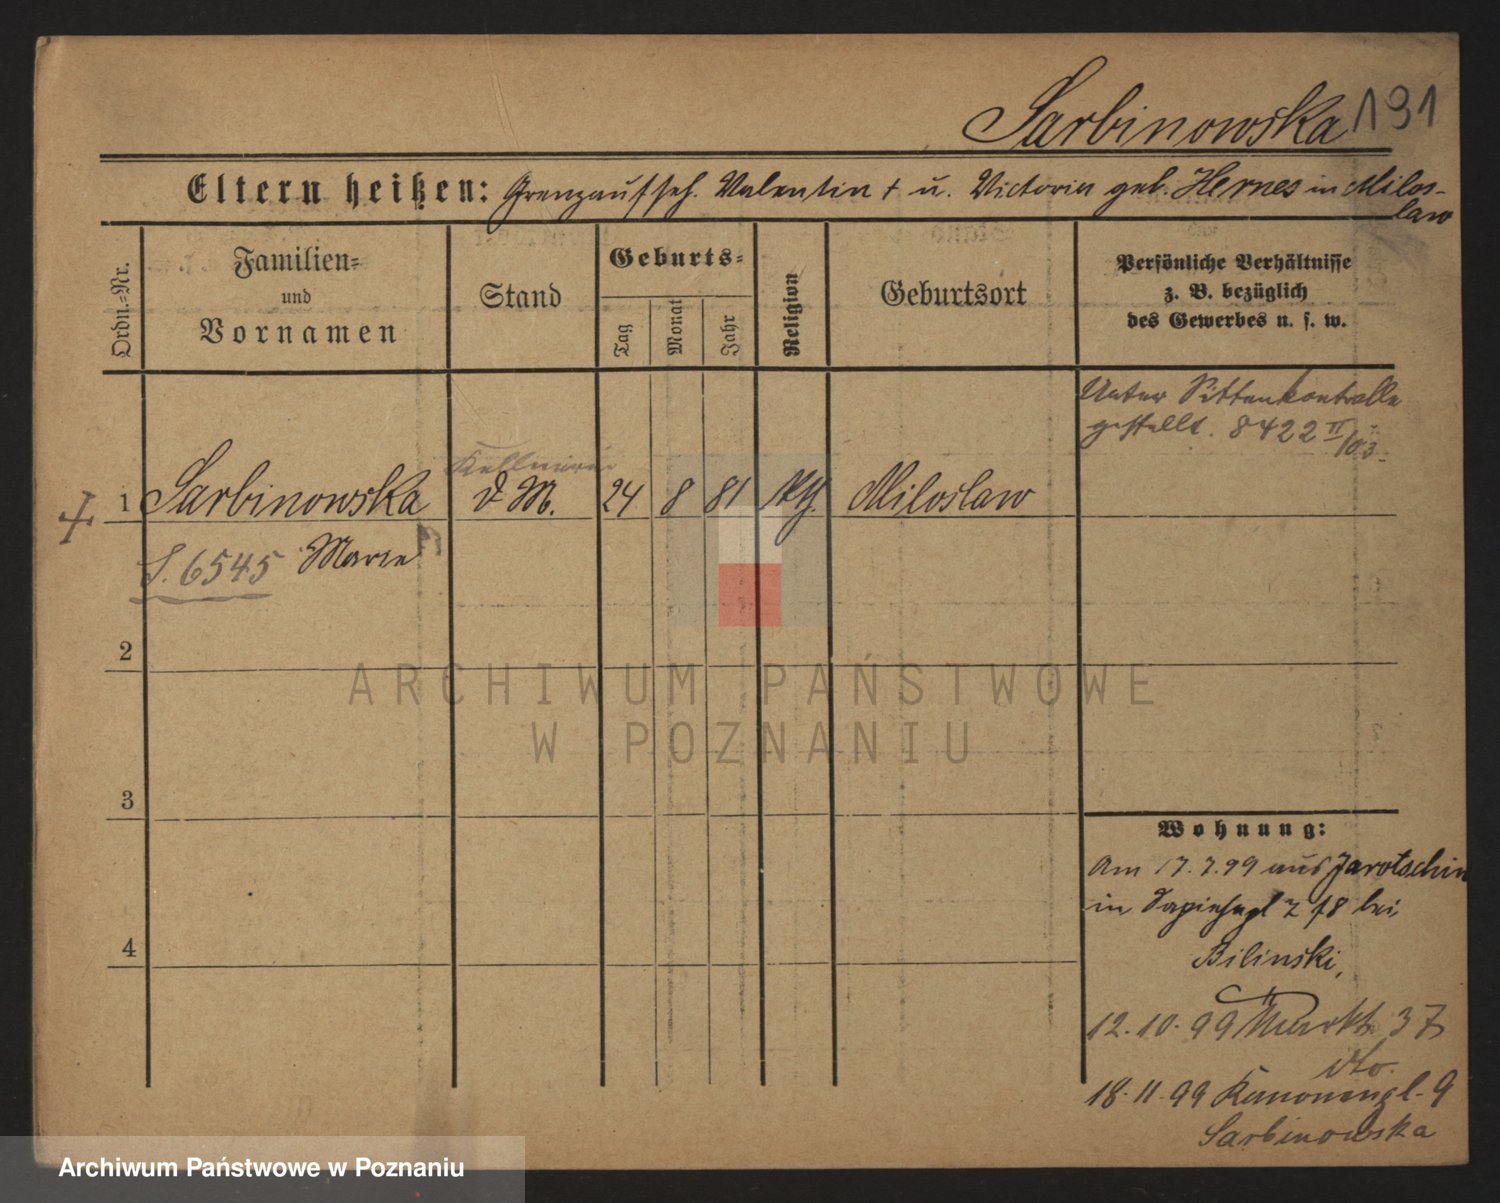 Sarbinowska 191
Eltern heißen: Grenzaufseh. Valentin + u. Victoria geb. Hernes in Milos-
law
Ordn.=Nr.
Familien=
und
Vornamen
Stand
Geburts=
Tag
Monat
Jahr
Religion
Geburtsort
Persönliche Verhältnisse
z. B. bezüglich
des Gewerbes u. s. w.
Unter Sittenkontrolle
gestellt. 8422 II/03.
Kellnerin
+ 1 Sarbinowska d. M. 24 8 81 kth. Miloslaw
S. 6545 Marie
2
3
4
Wohnung:
Am 17.7.99 aus Jarotschin
in Sapiehapl 7 bei
Bilinski,
12.10.99 Markt 37
dto.
18.11.99 Kanonenpl. 9
Sarbinowska
ARCHIWUM PAŃSTWOWE
W POZNANIU
Archiwum Państwowe w Poznaniu